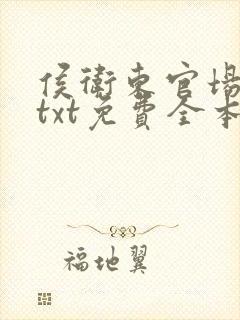 侯衛東官場
txt免費全本
福地翼